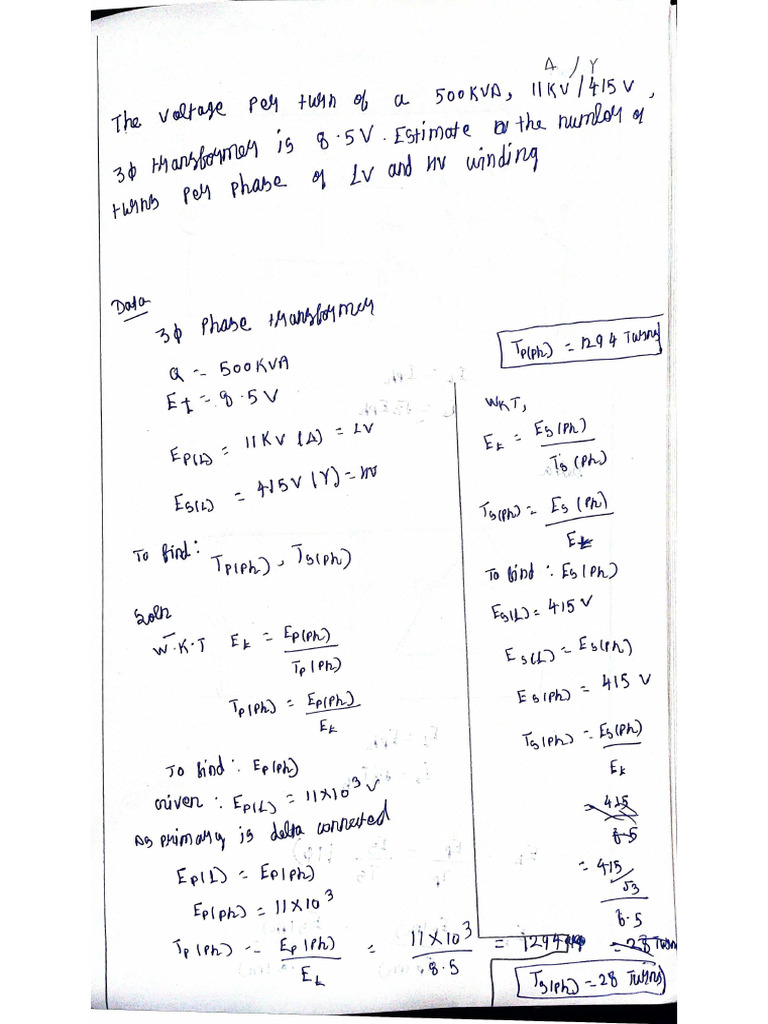 Δ / Y
The voltage per turn of a 500KVA, 11KV/415V,
3ϕ transformer is 8.5V. Estimate the number of
turns per phase of LV and HV winding
Data
3ϕ Phase transformer
Q = 500KVA
Et = 8.5V
EP(L) = 11KV (Δ) = LV
ES(L) = 415V (Y) = HV
To find: TP(Ph), TS(Ph)
Soln
W.K.T Et = EP(Ph) / TP(Ph)
TP(Ph) = EP(Ph) / Et
To find: EP(Ph)
Given: EP(L) = 11×10³ V
As primary is delta connected
EP(L) = EP(Ph)
EP(Ph) = 11×10³
TP(Ph) = EP(Ph) / Et = 11×10³ / 8.5 = 1294
TP(Ph) = 1294 Turns
WKT,
Et = ES(Ph) / TS(Ph)
TS(Ph) = ES(Ph) / Et
To find: ES(Ph)
ES(L) = 415 V
ES(L) = ES(Ph)
ES(Ph) = 415 V
TS(Ph) = ES(Ph) / Et
= 415 / 8.5
= 415/√3 / 8.5
= 28 Turns
TS(Ph) = 28 Turns